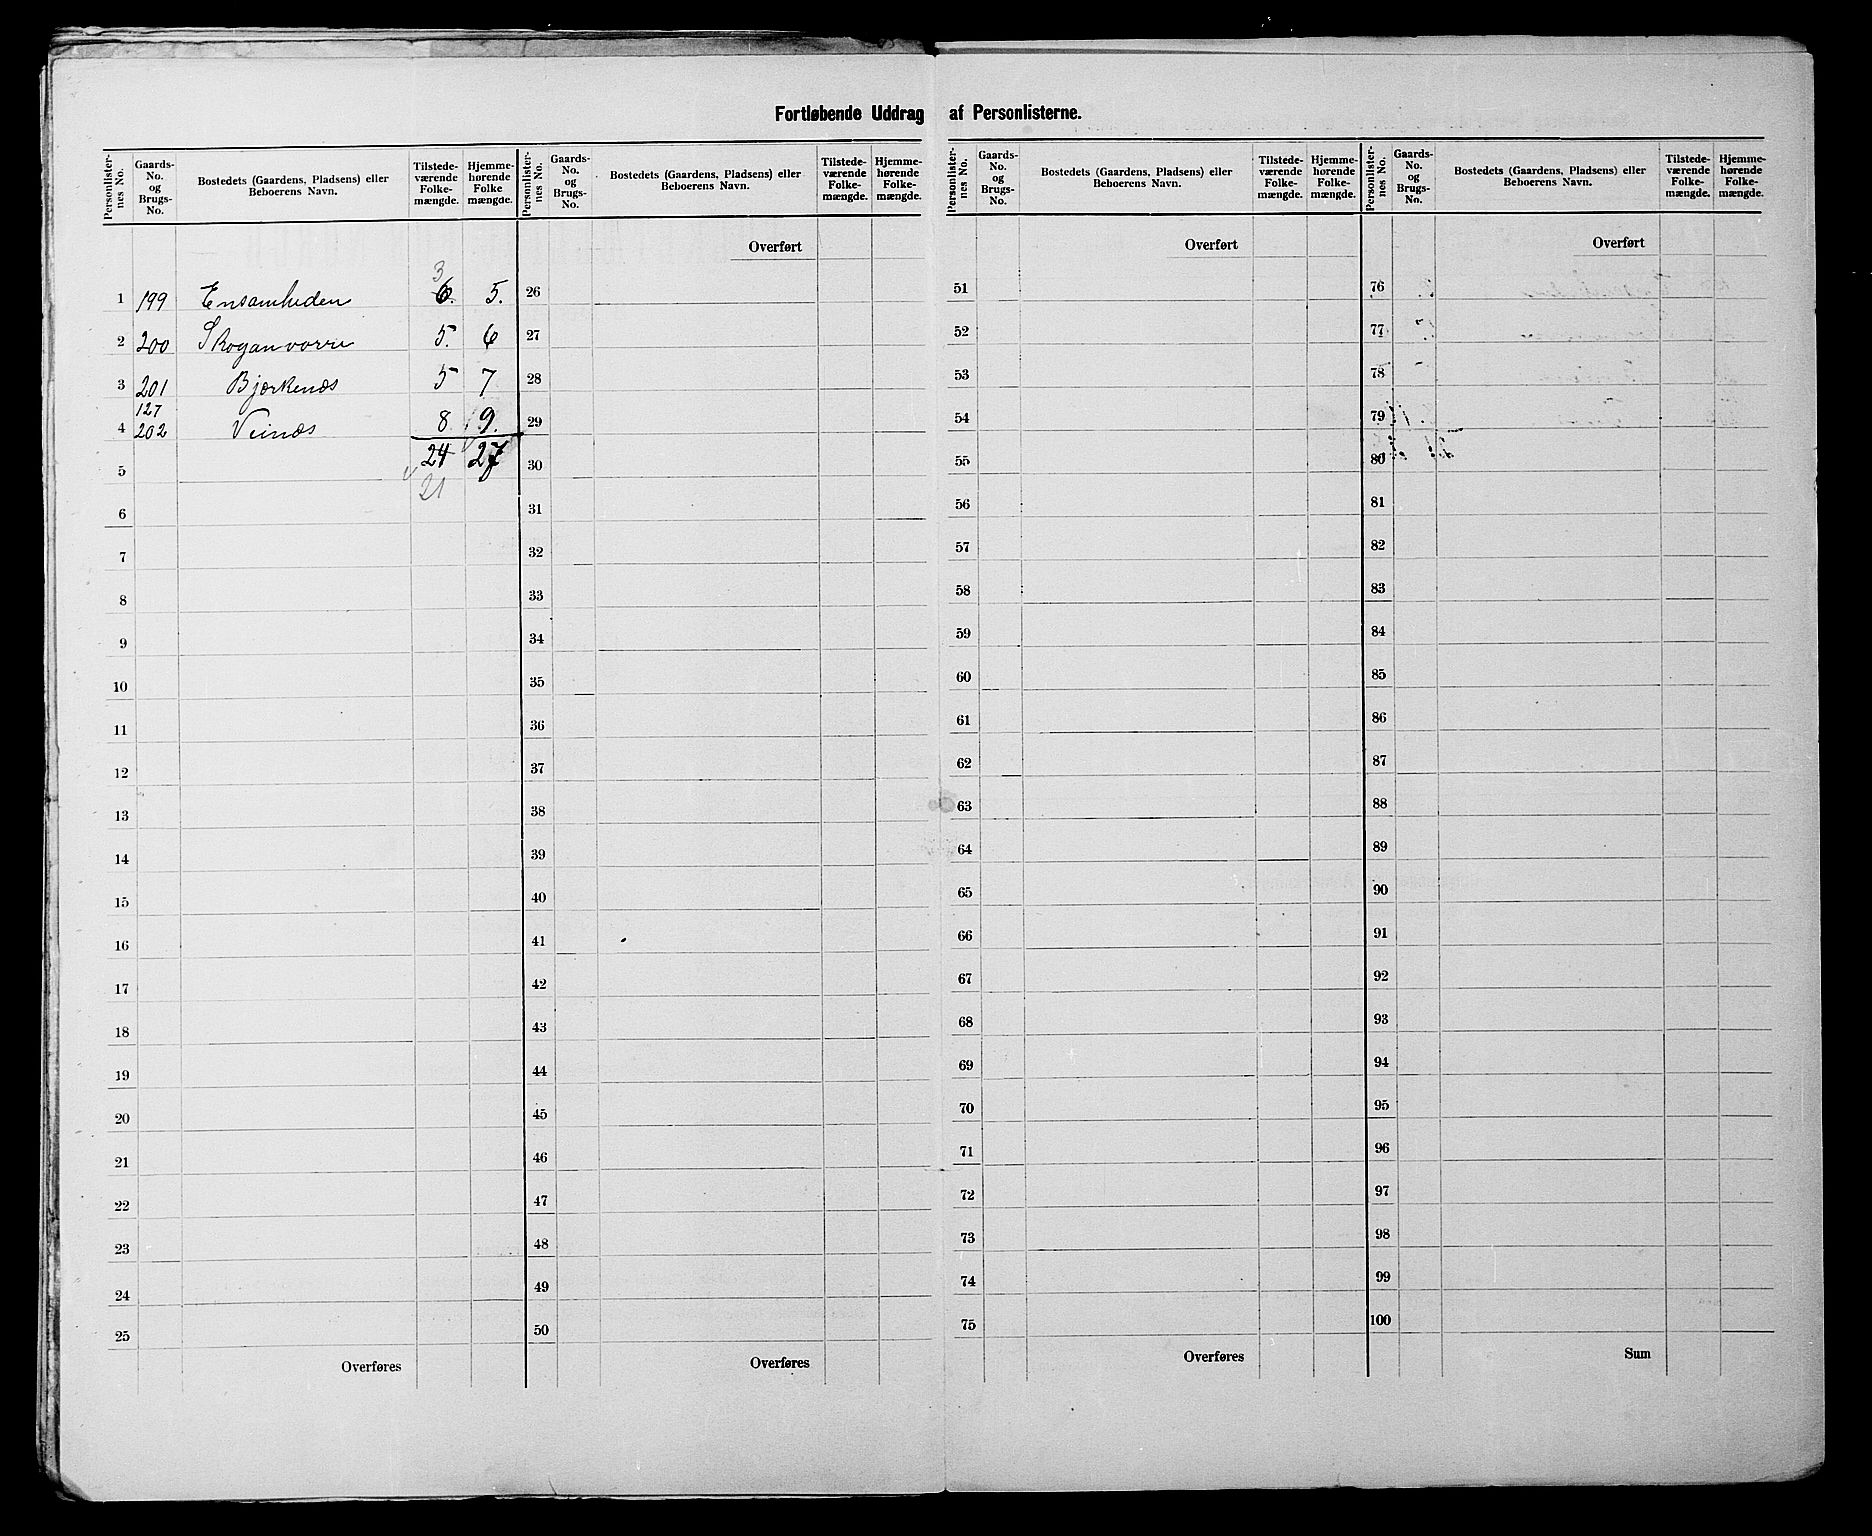 Fortløbende Uddrag af Personlisterne.
Personlister-nes No. Gaards-No. og Brugs-No. Bostedets (Gaardens, Pladsens) eller Beboerens Navn. Tilstede-værende Folke-mængde. Hjemme-hørende Folke mængde.
1 199 Ensamheden 6. 3 5.
2 200 Skoganvorre 5. 6
3 201 Bjørkenæs 5 7
127
4 202 Veinæs 8 9.
5 24 27
21
6
7
8
9
10
11
12
13
14
15
16
17
18
19
20
21
22
23
24
25
Overføres
Personlister-nes No. Gaards-No. og Brugs-No. Bostedets (Gaardens, Pladsens) eller Beboerens Navn. Tilstede-værende Folke-mængde. Hjemme-hørende Folke-mængde.
Overført
26
27
28
29
30
31
32
33
34
35
36
37
38
39
40
41
42
43
44
45
46
47
48
49
50
Overføres
Personlister-nes No. Gaards-No. og Brugs-No. Bostedets (Gaardens, Pladsens) eller Beboerens Navn. Tilstede-værende Folke-mængde. Hjemme-hørende Folke-mængde.
Overført
51
52
53
54
55
56
57
58
59
60
61
62
63
64
65
66
67
68
69
70
71
72
73
74
75
Overføres
Personlister-nes No. Gaards-No. og Brugs-No. Bostedets (Gaardens, Pladsens) eller Beboerens Navn. Tilstede-værende Folke-mængde. Hjemme-hørende Folke-mængde.
Overført
76
77
78
79
80
81
82
83
84
85
86
87
88
89
90
91
92
93
94
95
96
97
98
99
100
Sum